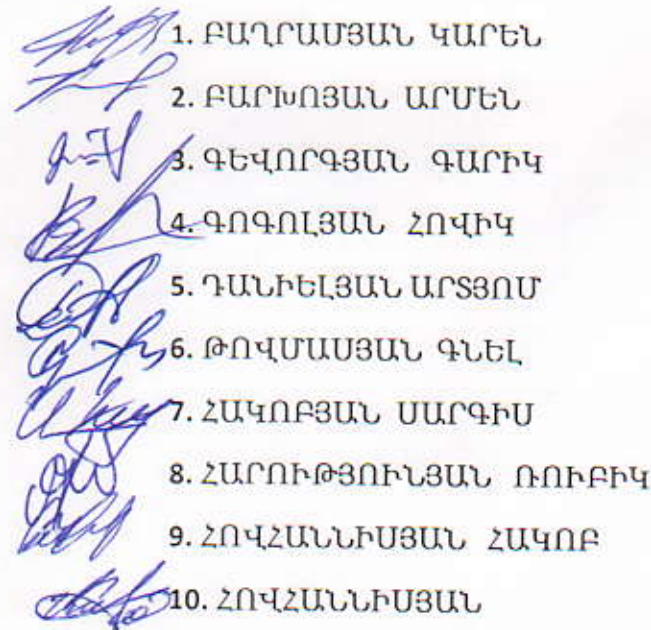 1. ԲԱՂՐԱՄՅԱՆ ԿԱՐԵՆ
2. ԲԱՐԽՈՅԱՆ ԱՐՄԵՆ
3. ԳԵՎՈՐԳՅԱՆ ԳԱՐԻԿ
4. ԳՈԳՈԼՅԱՆ ՀՈՎԻԿ
5. ԴԱՆԻԵԼՅԱՆ ԱՐՏՅՈՄ
6. ԹՈՎՄԱՍՅԱՆ ԳՆԵԼ
7. ՀԱԿՈԲՅԱՆ ՍԱՐԳԻՍ
8. ՀԱՐՈՒԹՅՈՒՆՅԱՆ ՌՈՒԲԻԿ
9. ՀՈՎՀԱՆՆԻՍՅԱՆ ՀԱԿՈԲ
10. ՀՈՎՀԱՆՆԻՍՅԱՆ